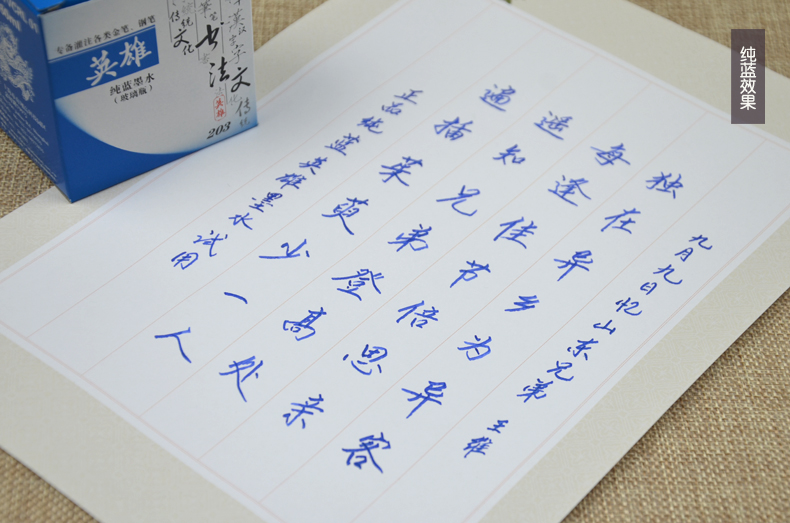 纯蓝效果
专备灌注各类金笔、钢笔
英雄
纯蓝墨水
(玻璃瓶)
传统文化
书法
英雄
203
九月九日忆山东兄弟 王维
独在异乡为异客
每逢佳节倍思亲
遥知兄弟登高处
遍插茱萸少一人
正品纯蓝英雄墨水
试用